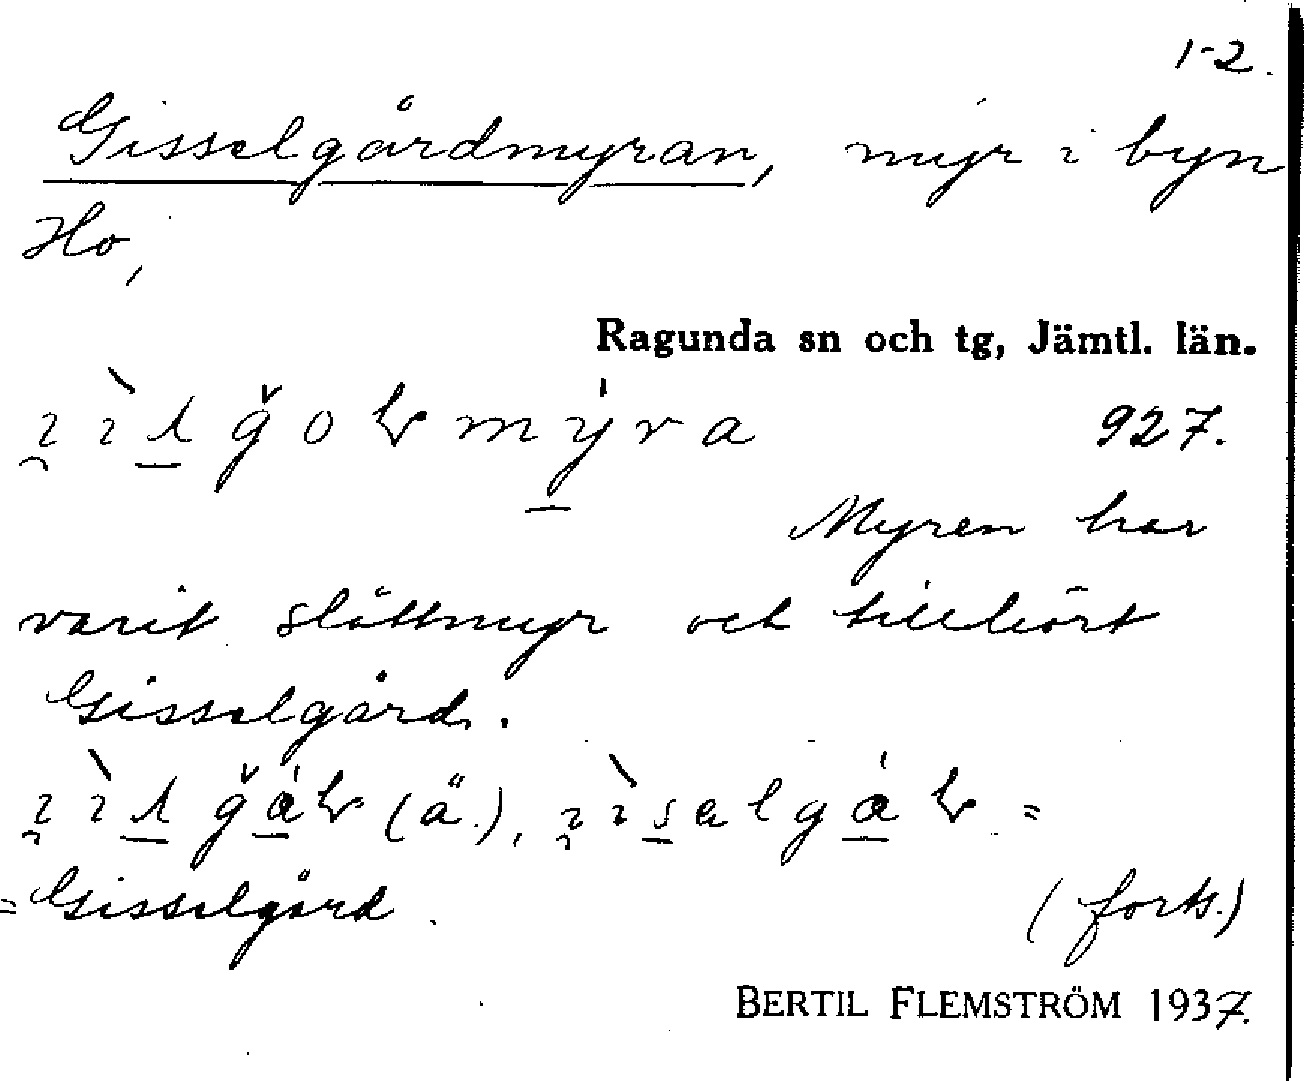 1-2.
Gisselgårdmyran, myr i byn
Ho,
Ragunda sn och tg, Jämtl. län.
927.
Myren har
varit slåttmyr och tillhört
Gisselgård.
(ä.),
= Gisselgård.
(forts.)
BERTIL FLEMSTRÖM 1937.